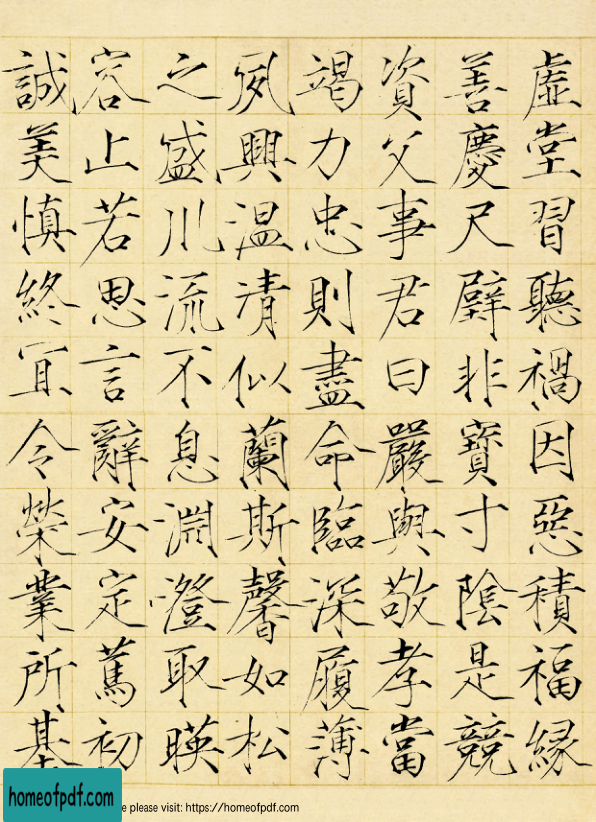 虛堂習聽禍因惡積福緣
善慶尺璧非寶寸陰是競
資父事君曰嚴與敬孝當
竭力忠則盡命臨深履薄
夙興温清似蘭斯馨如松
之盛川流不息淵澄取暎
容止若思言辭安定篤初
誠美慎終宜令榮業所基
homeofpdf.com
please visit: https://homeofpdf.com